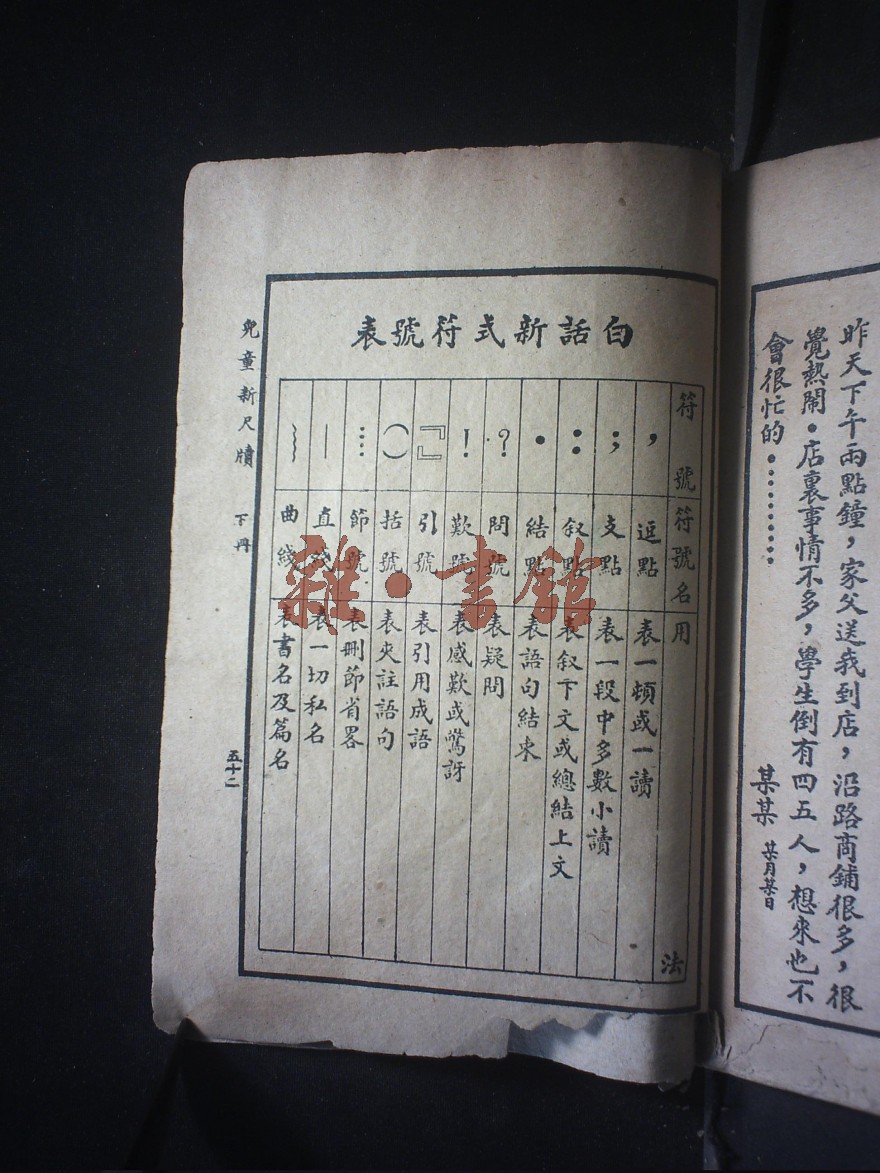 昨天下午兩點鐘，家父送我到店，沿路商鋪很多，很
覺熱鬧．店裏事情不多，學生倒有四五人，想來也不
會很忙的．………
某某 某月某日
白話新式符號表
符號 符號名 用法
， 逗點 表一頓或一讀
； 支點 表一段中多數小讀
： 叙點 表叙下文或總結上文
． 結點 表語句結束
？ 問號 表疑問
！ 歎號 表感歎或驚訝
『』 引號 表引用成語
（） 括號 表夾註語句
…… 節號 表刪節省畧
— 直綫 表一切私名
﹏ 曲綫 表書名及篇名
兒童新尺牘 下冊 五十二
雜·書館